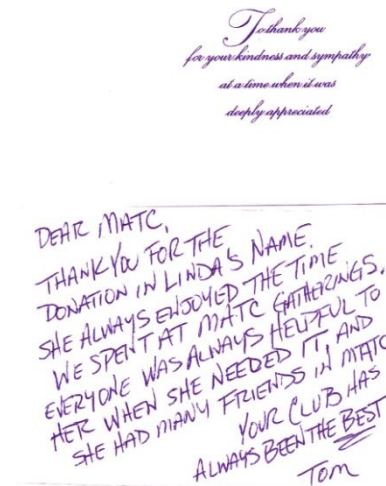 To thank you
for your kindness and sympathy
at a time when it was
deeply appreciated
DEAR MATC,
THANK YOU FOR THE
DONATION IN LINDA'S NAME.
SHE ALWAYS ENJOYED THE TIME
WE SPENT AT MATC GATHERINGS.
EVERYONE WAS ALWAYS HELPFUL TO
HER WHEN SHE NEEDED IT, AND
SHE HAD MANY FRIENDS IN MATC
YOUR CLUB HAS
ALWAYS BEEN THE BEST
TOM